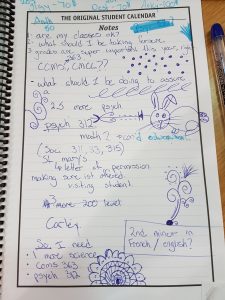 THE ORIGINAL STUDENT CALENDAR
Notes
are my classes ok?
what should I be taking forware
grades are super important this year, right
363
CCMS, CMCL??
- what should I be doing to assure
2.5 more psych
psych 312
math 2
education
(Soci 311, 313, 315)
St mary's
letter of permission
making sure ist offered
visiting student
more 200 level
Corley.
So I need
1 more science
coms 363
psych 312
2nd minor in
French / english?